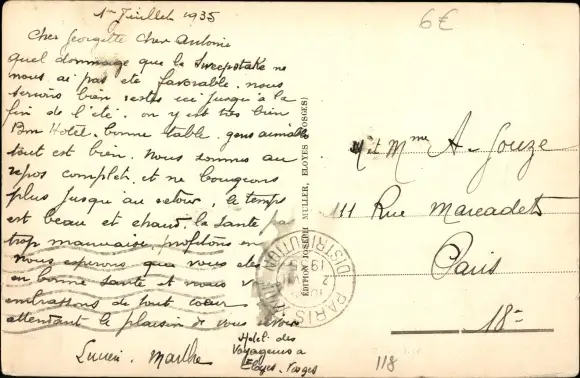 1er Juillet 1935
6€
Cher Georgette Cher Antonin
quel dommage que le Sweepstake ne
nous ai pas ete favorable. nous
serions bien restes ici jusqu'a la
fin de l'été. on y est très bien
Bon Hotel. bonne table. gens aimable
tout est bien. nous sommes au
repos complet, et ne bougeons
plus jusqu'au retour, le temps
est beau et chaud. la Sante pas
trop mauvaise, profitons en
nous esperons que vous etes
en bonne sante et nous v
embrassons de tout coeur
attendant le plaisir de vous revoir
Lucien. Marthe
Hotel des
Voyageurs a
Eloyes. Vosges
EDITION JOSEPH MULLER, ELOYES (VOSGES)
PARIS
DISTRIBUTION
Mr et Mme A. Gouze
111 Rue Marcadet
Paris
18e
118